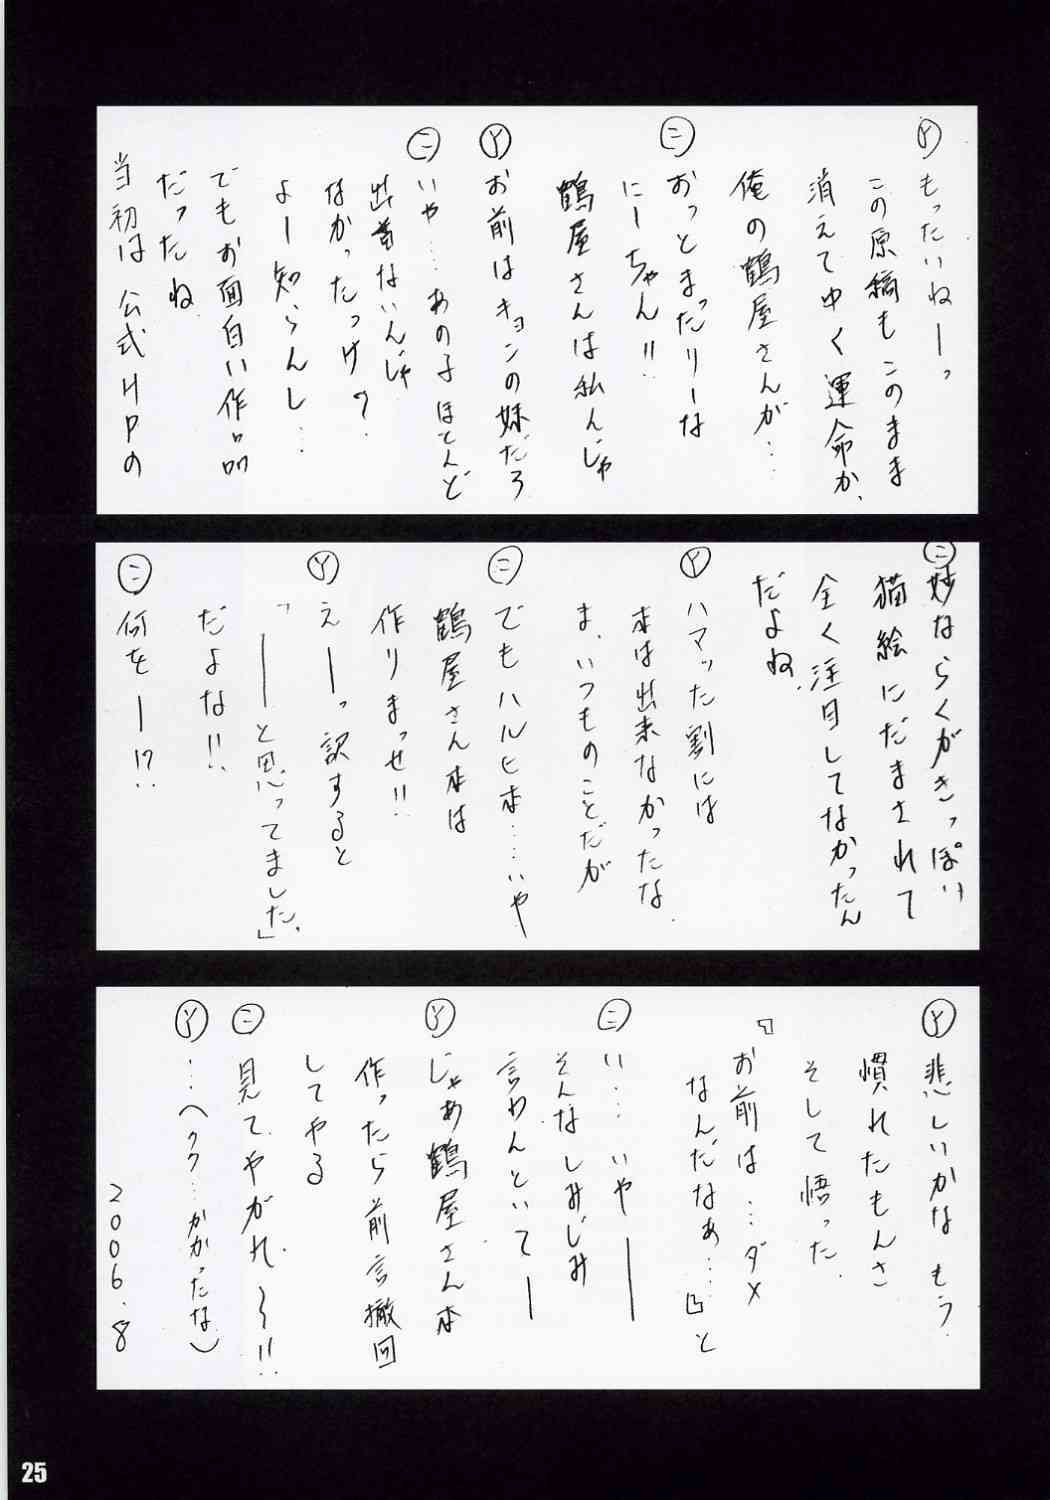 Ⓨもったいねーっ
この原稿もこのまま
消えてゆく運命か、
俺の鶴屋さんが…
㊁おっとまったりーな
にーちゃん!!
鶴屋さんは私んじゃ
Ⓨお前はキョンの妹だろ
㊁いや…あの子ほとんど
出番ないんじゃ
なかったっけ?
よー知らんし…
でもお面白い作品
だったね
当初は公式HPの
㊁妙ならくがきっぽい
猫絵にだまされて
全く注目してなかったん
だよね、
Ⓨハマッた割には
本は出来なかったな
ま、いつものことだが
㊁でもハルヒ本…いや
鶴屋さん本は
作りまっせ!!
Ⓨえーっ訳すると
「――と思ってました。」
だよな!!
㊁何をー!?
Ⓨ悲しいかなもう
慣れたもんさ
そして悟った
『お前は…ダメ
なんだなぁ…』と
㊁い…いや――
そんなしみじみ
言わんといてー
Ⓨじゃあ鶴屋さん本
作ったら前言撤回
してやる
㊁見てやがれ～!!
Ⓨ…(ククク…かかったな)
2006.8
25